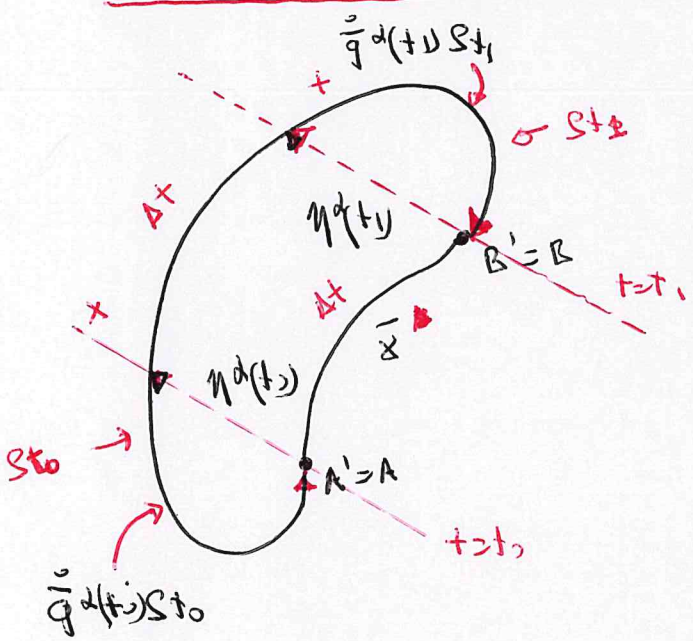 q̇̄ α(t1) St1
+
St1
Δt
ηα(t1)
B'=B
t=t1
Δt
x
x̄
ηα(t0)
St0
A'=A
t=t0
q̇̄ α(t0) St0